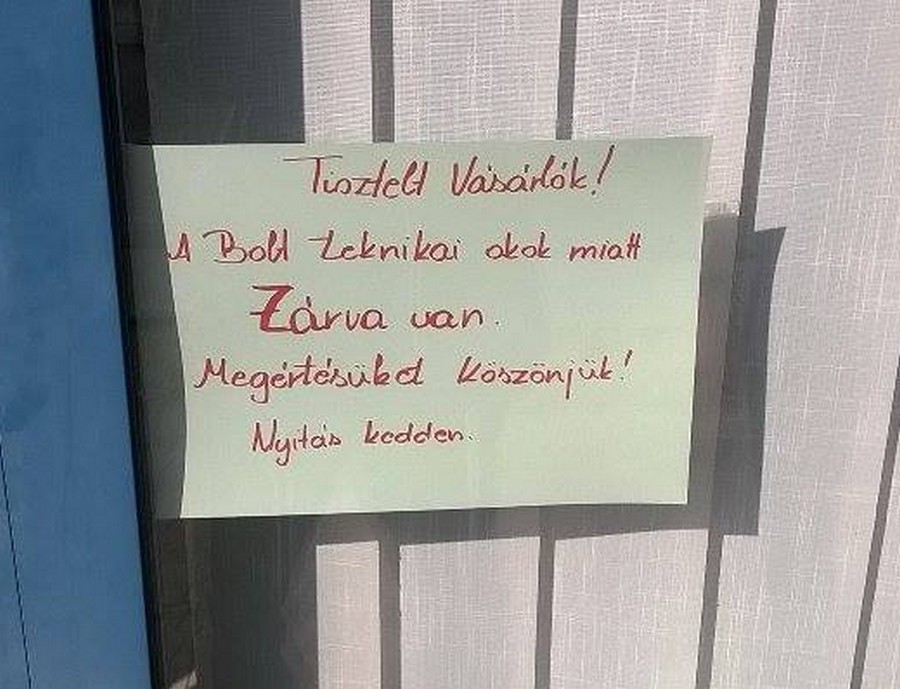 Tisztelt Vásárlók!
A Bolt teknikai okok miatt
Zárva van.
Megértésüket köszönjük!
Nyitás kedden.